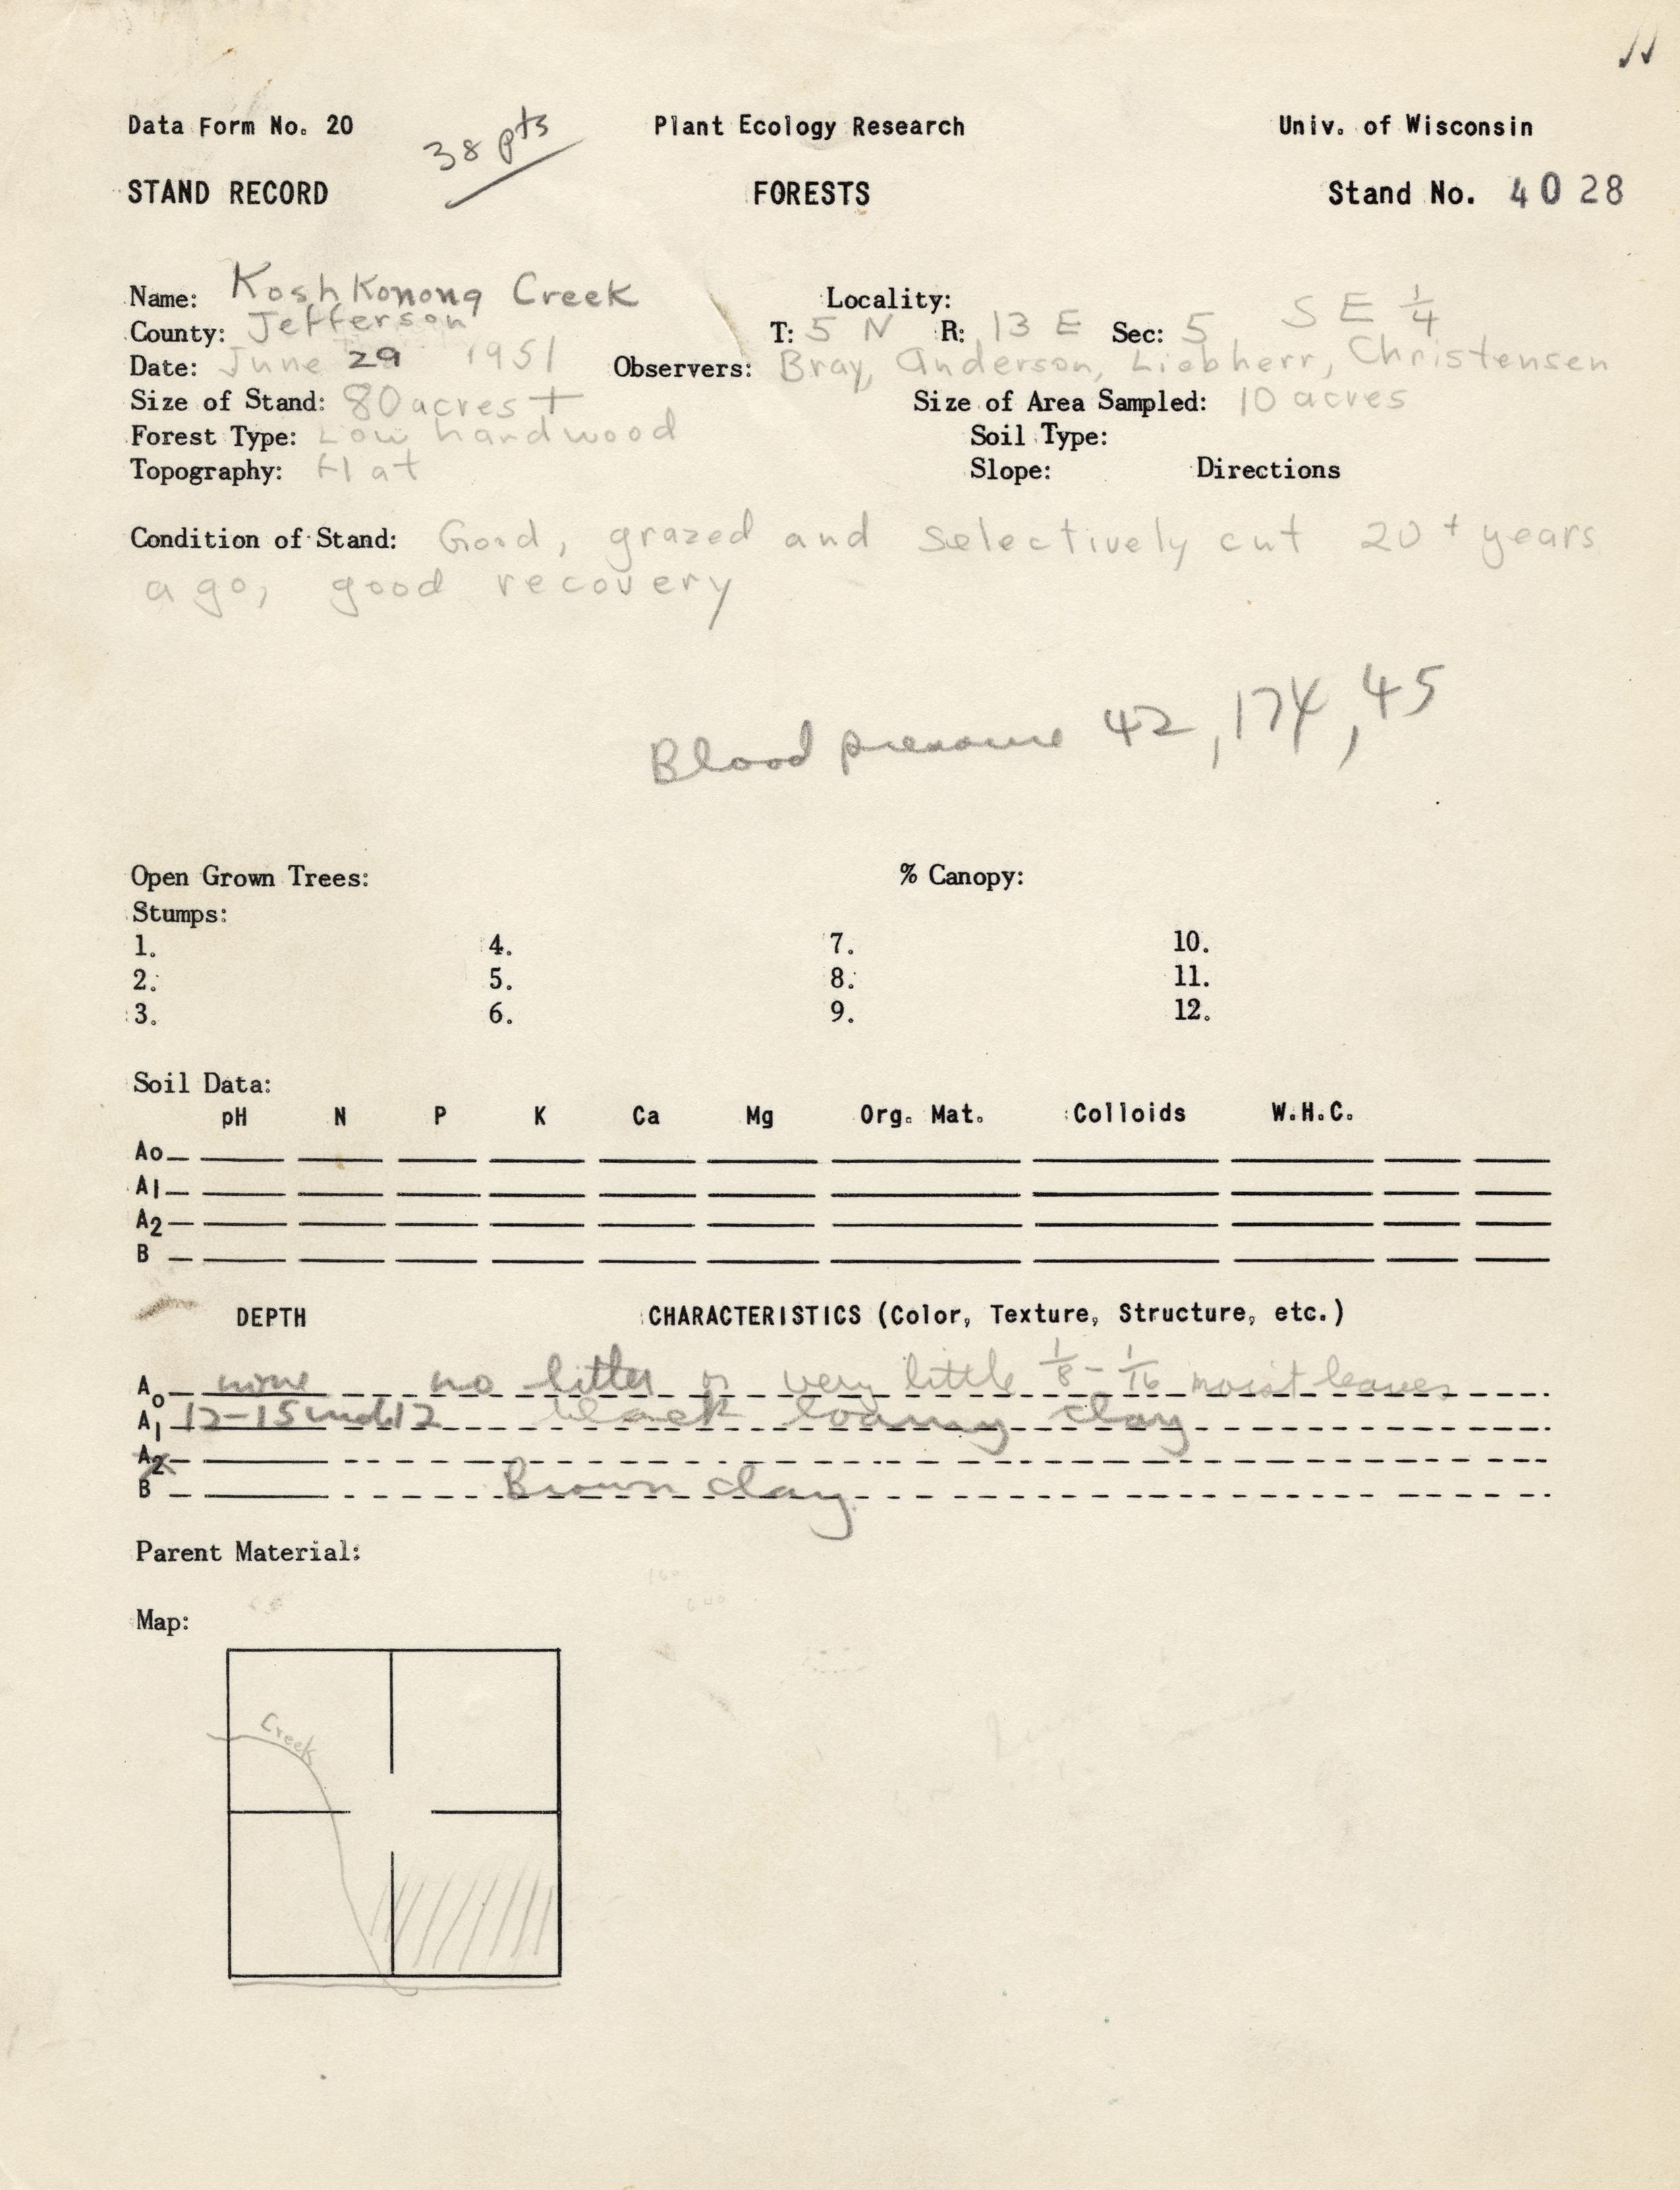 Data Form No. 20 38 pts Plant Ecology Research Univ. of Wisconsin
STAND RECORD FORESTS Stand No. 4028
Name: Koshkonong Creek Locality:
County: Jefferson T: 5 N R: 13 E Sec: 5 SE 1/4
Date: June 29 1951 Observers: Bray, Anderson, Liebherr, Christensen
Size of Stand: 80 acres + Size of Area Sampled: 10 acres
Forest Type: Low hardwood Soil Type:
Topography: Flat Slope: Directions
Condition of Stand: Good, grazed and selectively cut 20+ years
ago, good recovery
Blood pressure 42, 174, 45
Open Grown Trees: % Canopy:
Stumps:
1. 4. 7. 10.
2. 5. 8. 11.
3. 6. 9. 12.
Soil Data:
pH N P K Ca Mg Org. Mat. Colloids W.H.C.
Ao
A1
A2
B
DEPTH CHARACTERISTICS (Color, Texture, Structure, etc.)
Ao none no litter or very little 1/8 - 1/16 moist leaves
A1 12-15 12 black loamy clay
A2
B Brown clay
Parent Material:
Map:
Creek